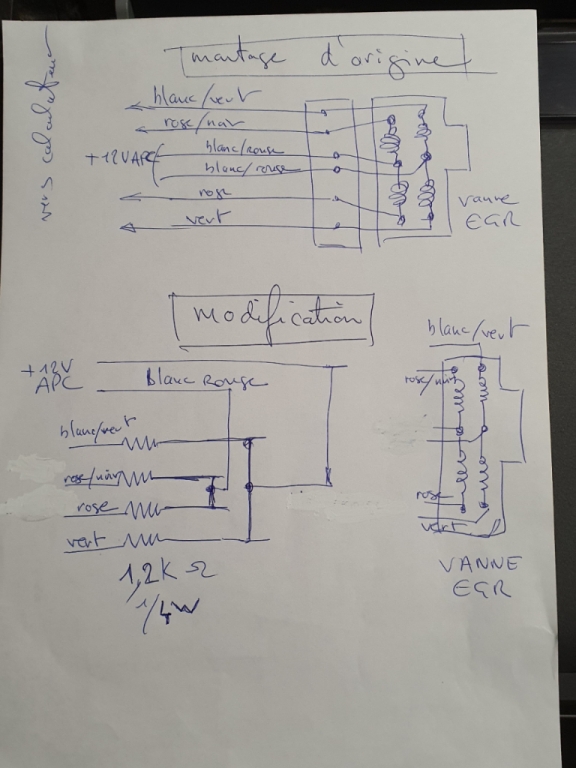 montage d'origine
vers calculateur
blanc/vert
rose/noir
+12V APC
blanc/rouge
blanc/rouge
rose
vert
vanne
EGR
Modification
+12V
APC
Blanc Rouge
blanc/vert
rose/noir
rose
vert
1,2K Ω
1/4W
blanc/vert
rose/noir
rose
vert
VANNE
EGR